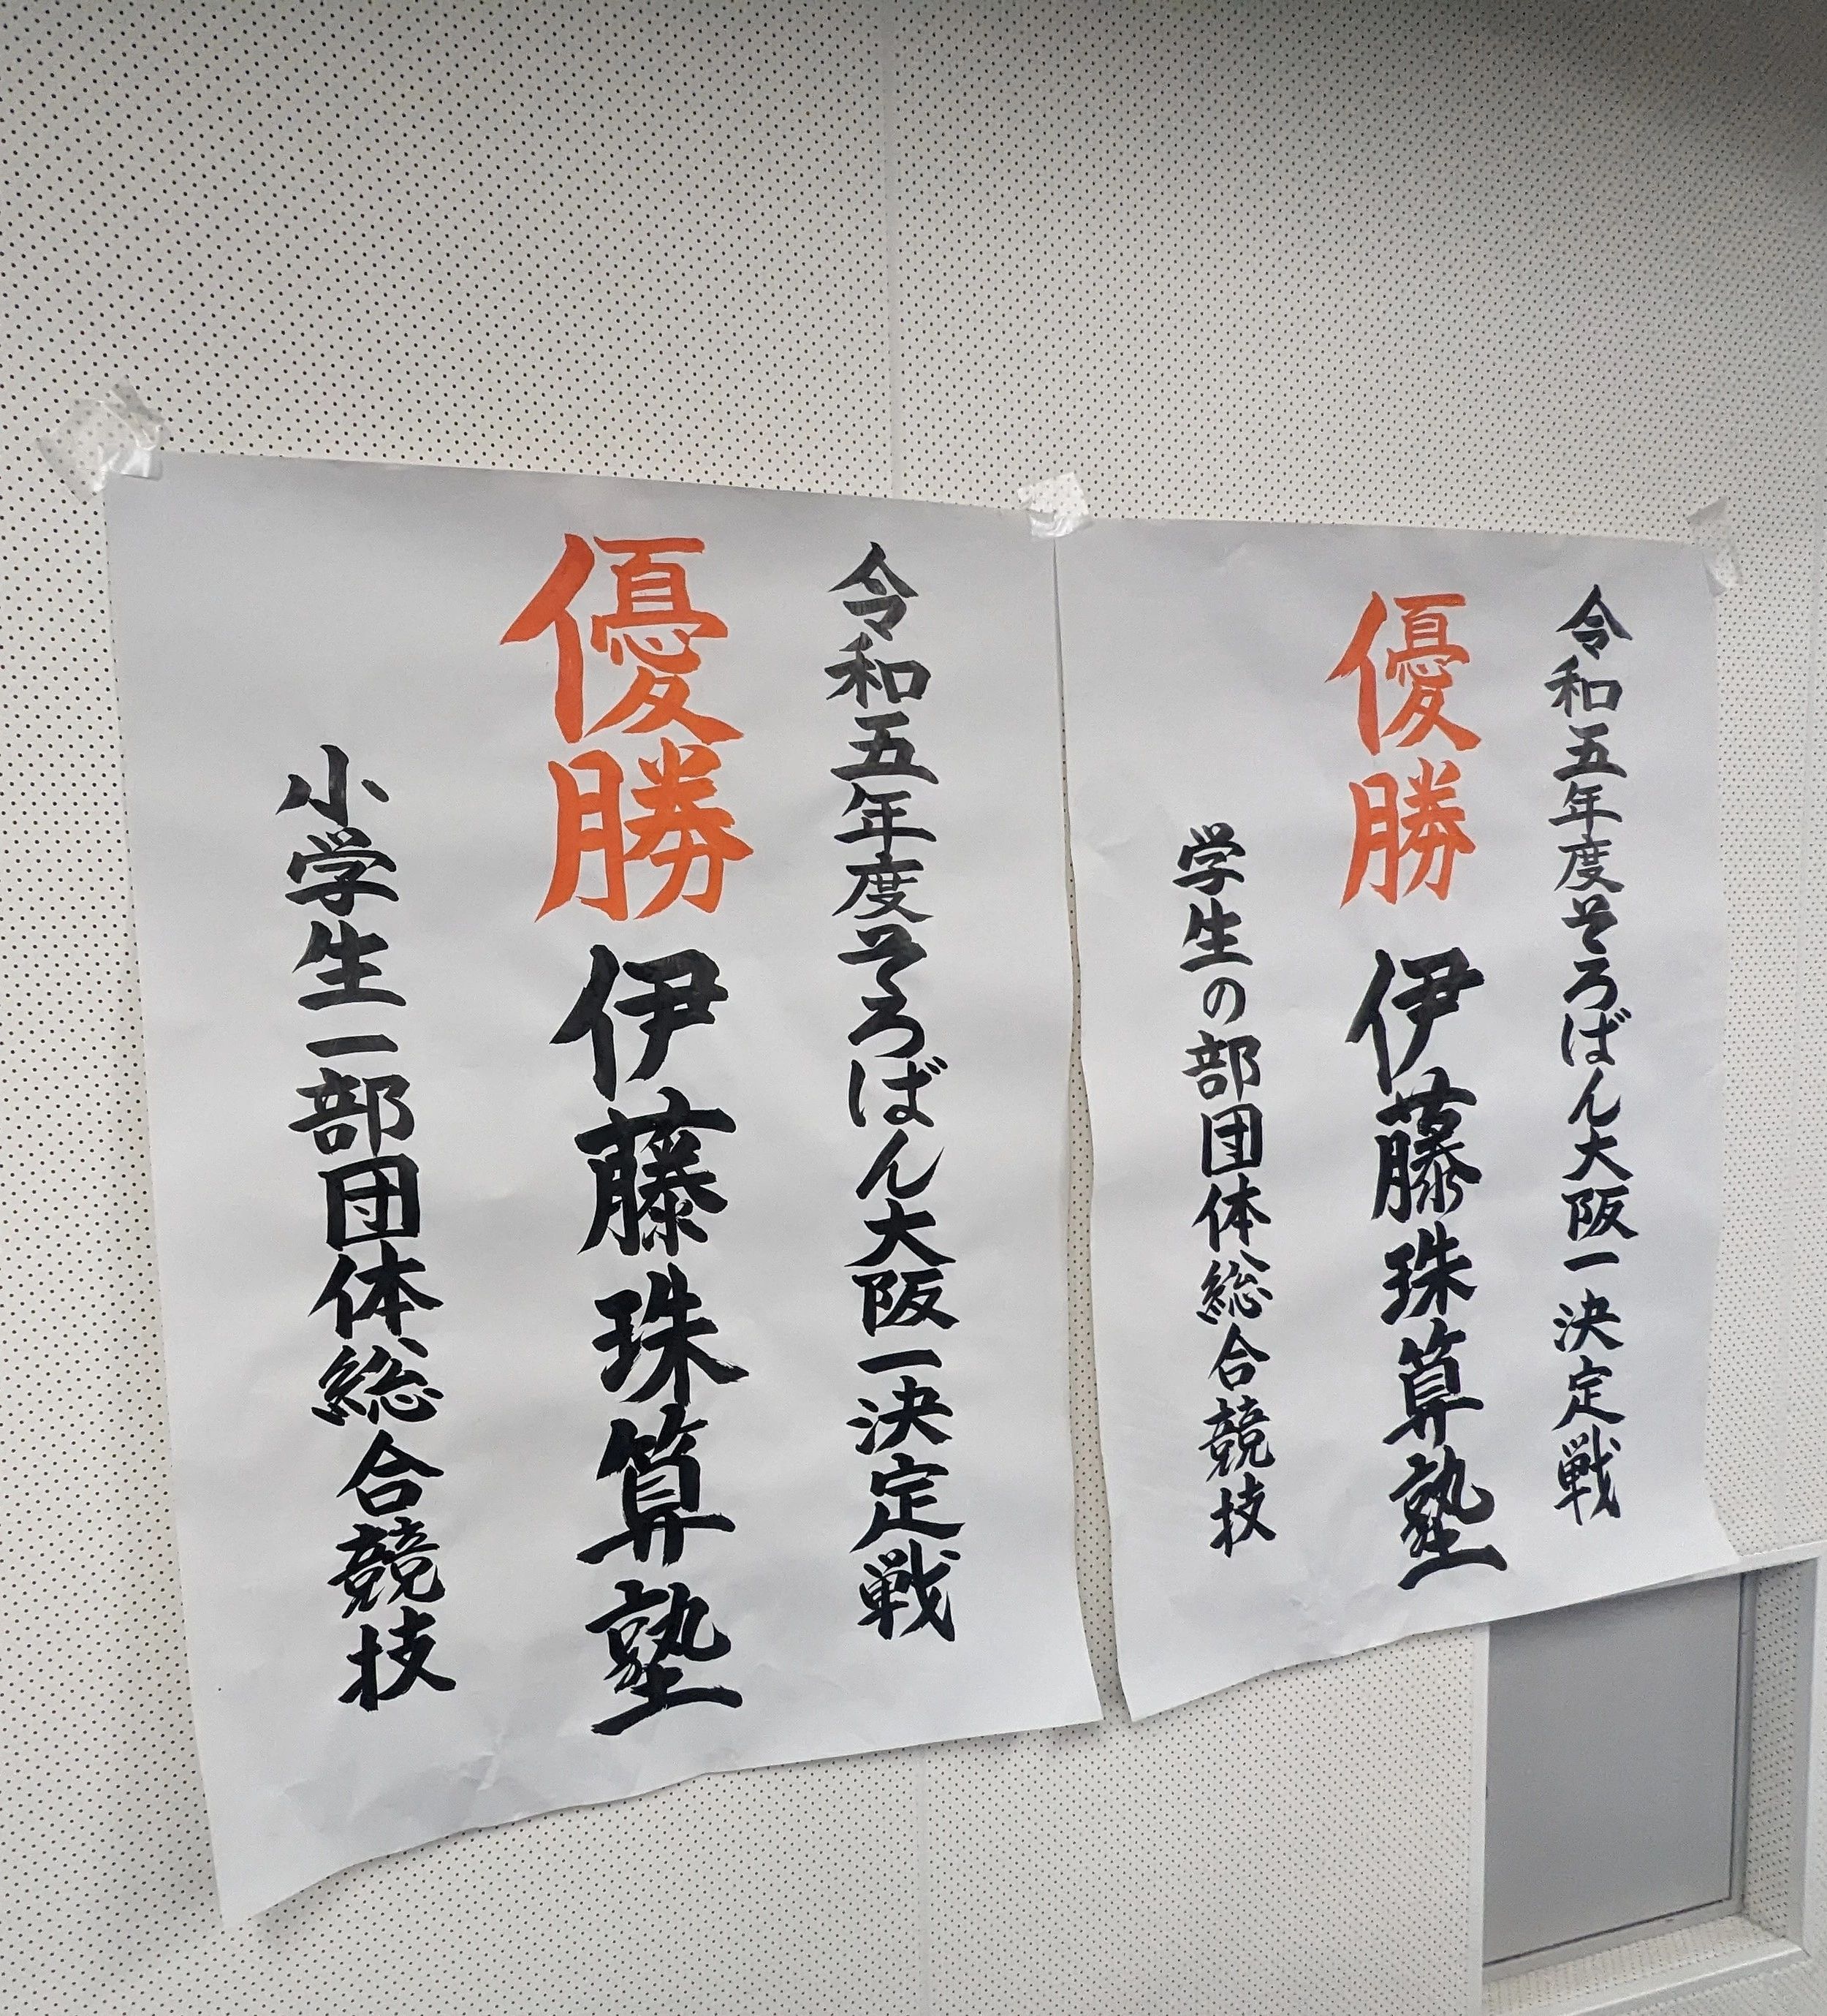 令和五年度そろばん大阪一決定戦
優勝 伊藤珠算塾
学生の部団体総合競技
令和五年度そろばん大阪一決定戦
優勝 伊藤珠算塾
小学生一部団体総合競技